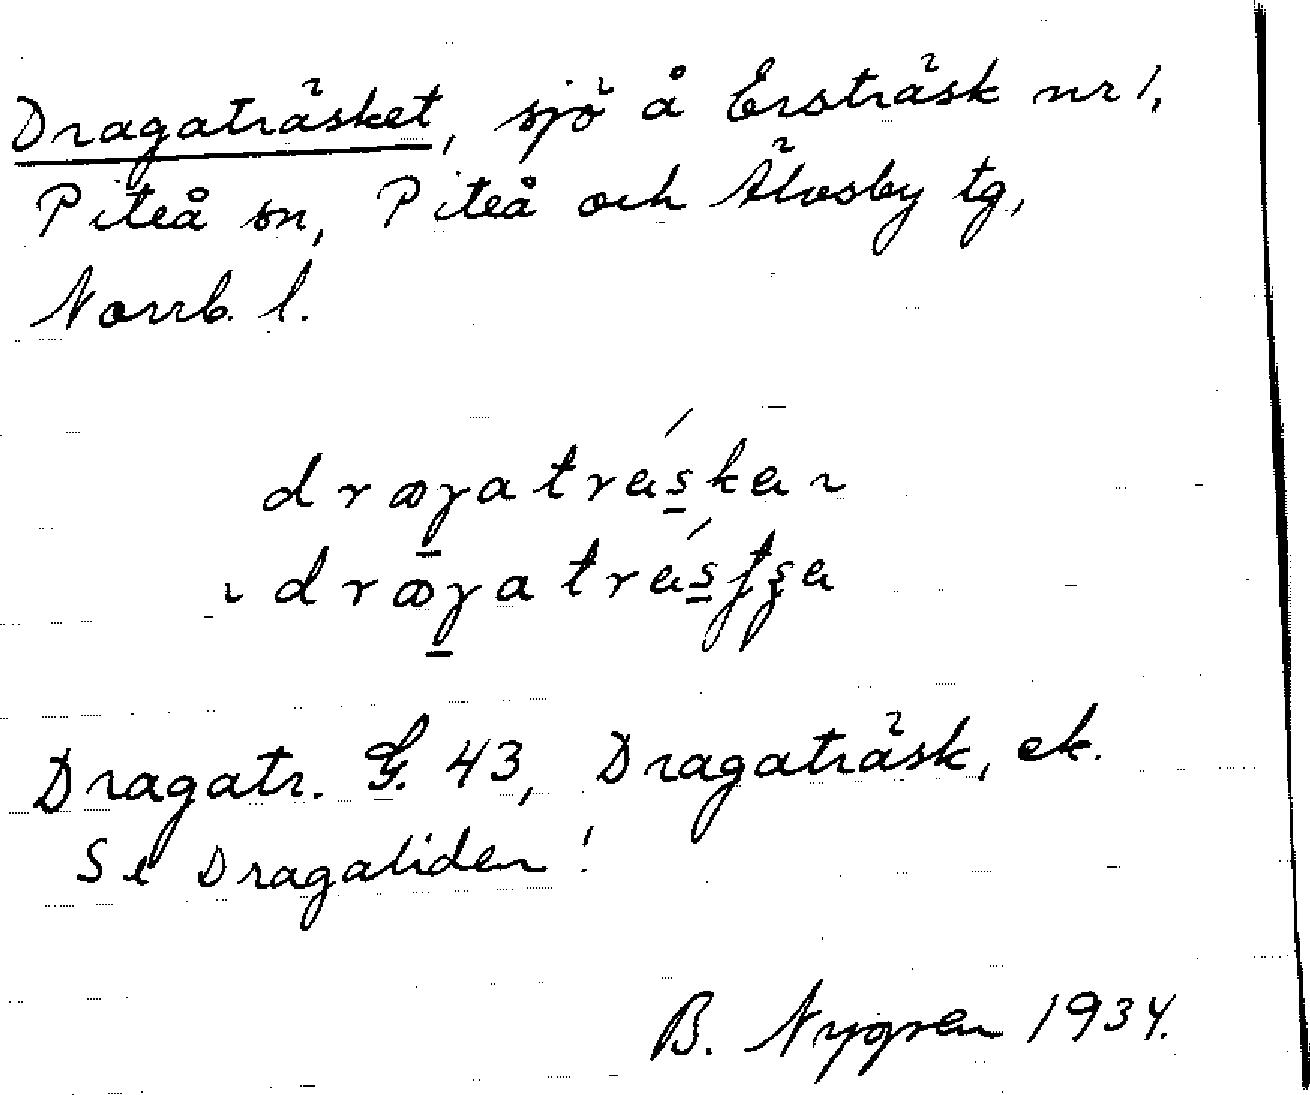 Dragaträsket, sjö å Ersträsk nr 1,
Piteå sn, Piteå och Älvsby tg,
Norrb. l.
Dragatr. G. 43, Dragaträsk, ek.
Se Dragaliden!
B. Nygren 1934.